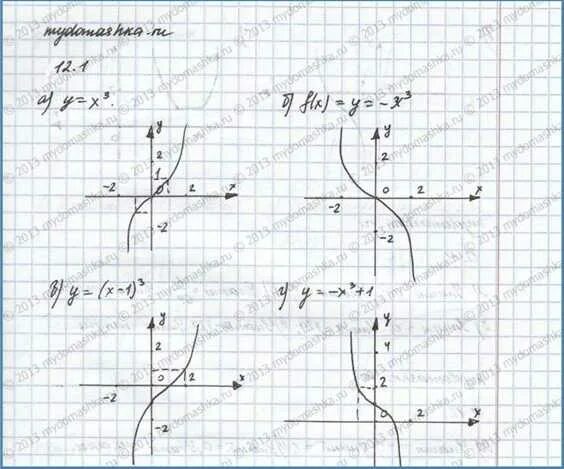 mydomashka.ru
12.1
а) y = x³.
б) f(x) = y = -x³
y
2
1
-2
0
2
x
-2
y
2
-2
0
2
x
-2
в) y = (x-1)³
г) y = -x³+1
y
2
-2
0
2
x
-2
y
4
2
0
2
x
© 2013 mydomashka.ru